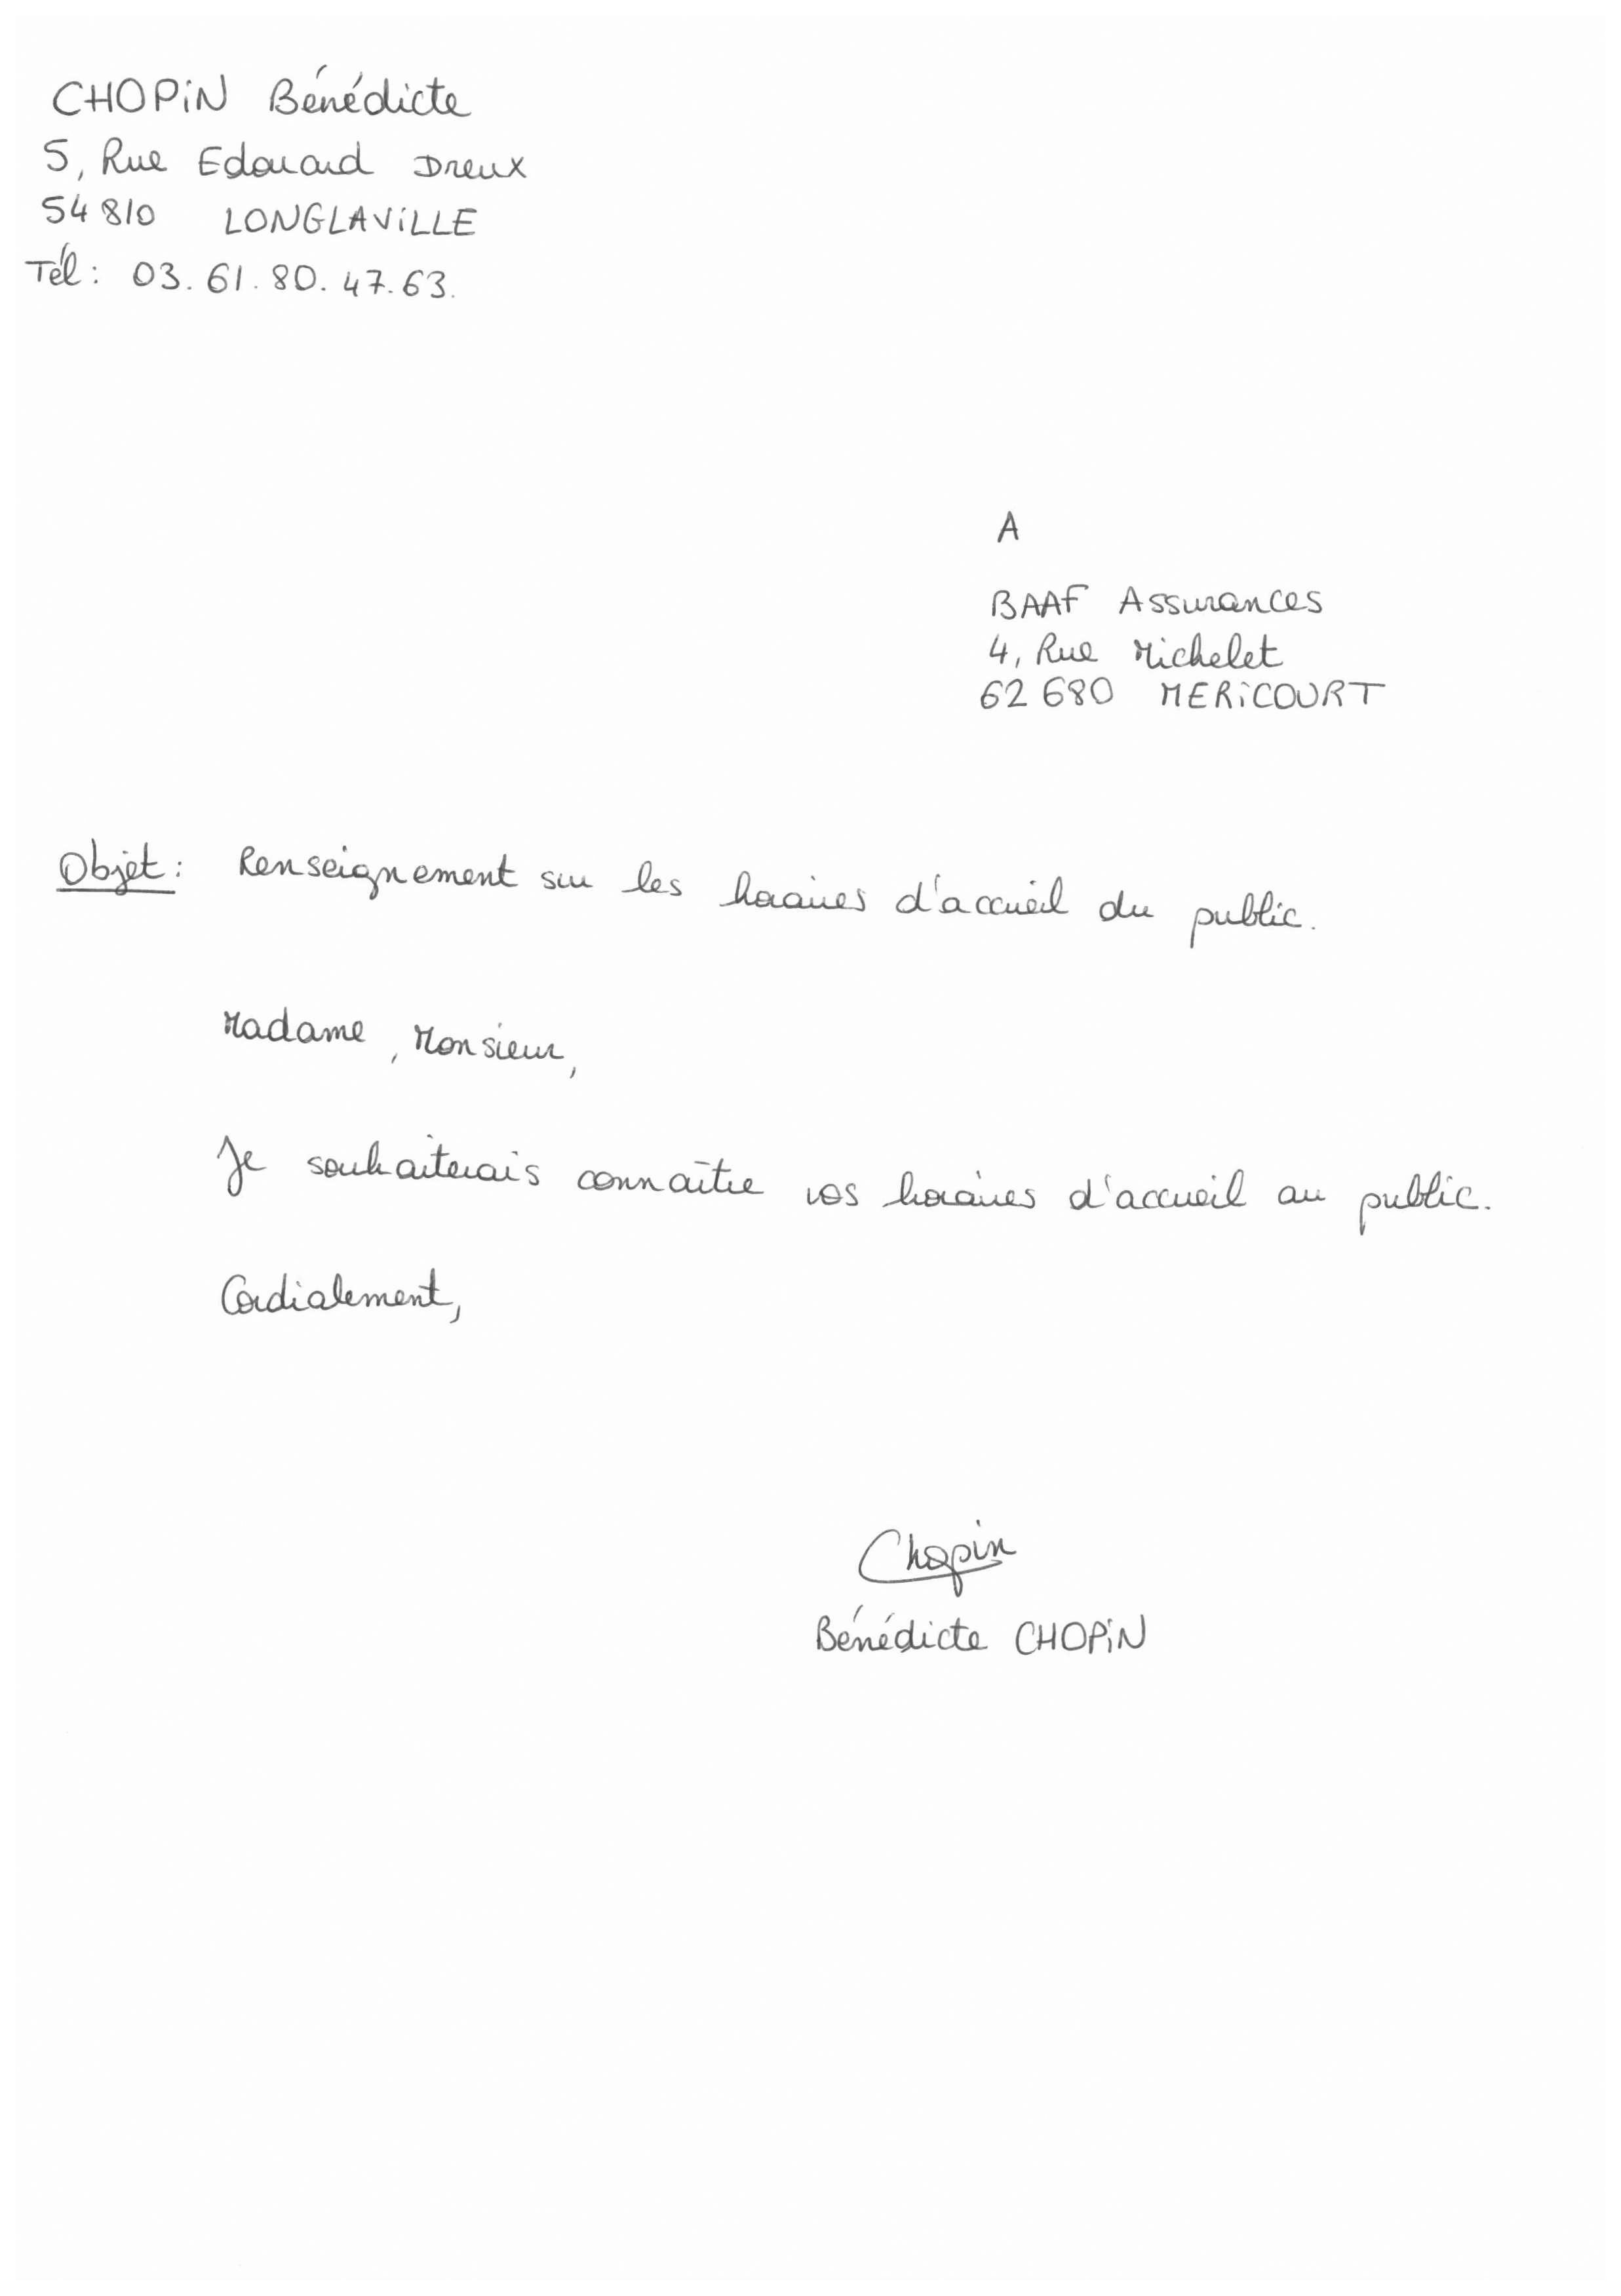 CHOPiN Bénédicte
5, Rue Edouard Dreux
54 810 LONGLAViLLE
Tél : 03. 61. 80. 47. 63.
A
BAAF Assurances
4, Rue Michelet
62 680 MERiCOURT
Objet : Renseignement sur les horaires d'accueil du public.
Madame, Monsieur,
Je souhaiterais connaître vos horaires d'accueil au public.
Cordialement,
Chopin
Bénédicte CHOPiN